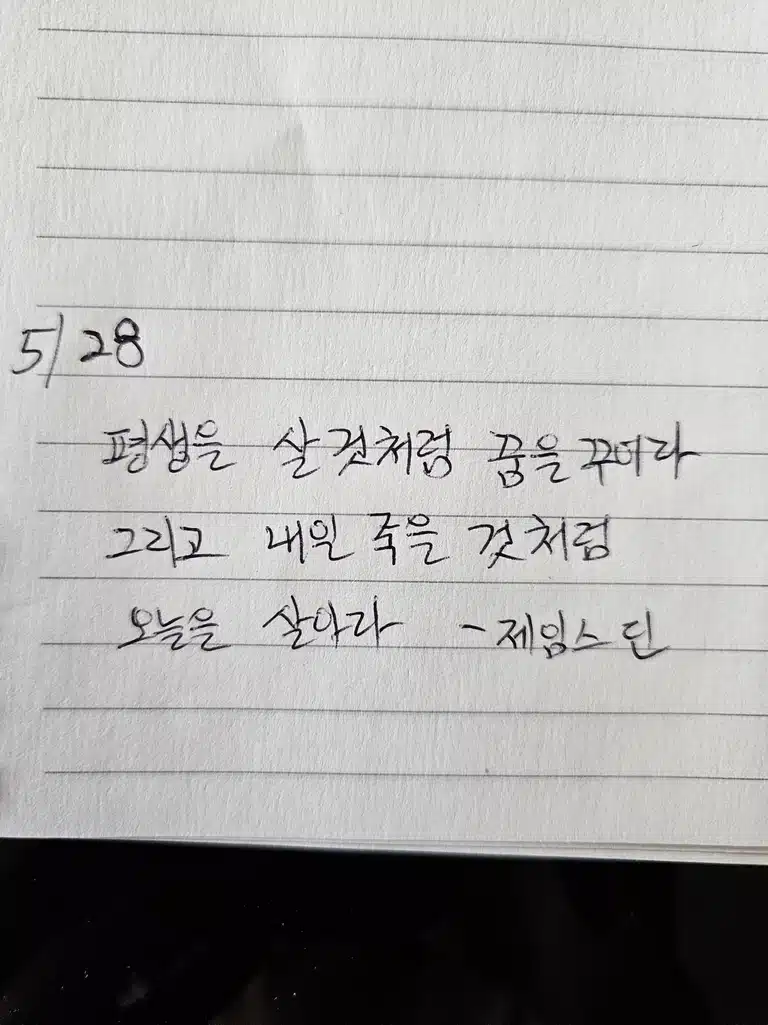 5/28
평생을 살 것처럼 꿈을 꾸어라
그리고 내일 죽을 것처럼
오늘을 살아라 - 제임스 딘